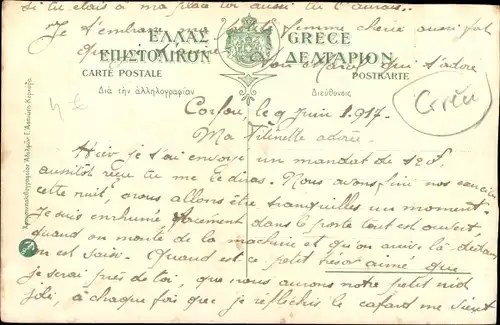 si tu étais à ma place toi aussi tu l'aurais..
Je t'embrasse ma petite femme chérie aussi fort
que je t'aime. Ton Marcel qui t'adore
ΕΛΛΑΣ GRÈCE
ΕΠΙΣΤΟΛΙΚΟΝ ΔΕΛΤΑΡΙΟΝ
CARTE POSTALE POSTKARTE
Διὰ τὴν ἀλληλογραφίαν Διεύθυνσις
Corfou, le 9 Juin 1.917
Ma Titinette adorée.
Hier je t'ai envoyé un mandat de
aussitôt reçu tu me le diras. Nous avons fini nos
cette nuit, nous allons être tranquilles un moment.
Je suis enrhumé forcément dans le poste tout est ouvert
quand on monte de la machine et qu'on arrive là-dedans
on est saisi. Quand est ce petit trésor aimé que
je serai près de toi, que nous aurons notre petit nid
joli, à chaque fois que je réfléchis le cafard me vient